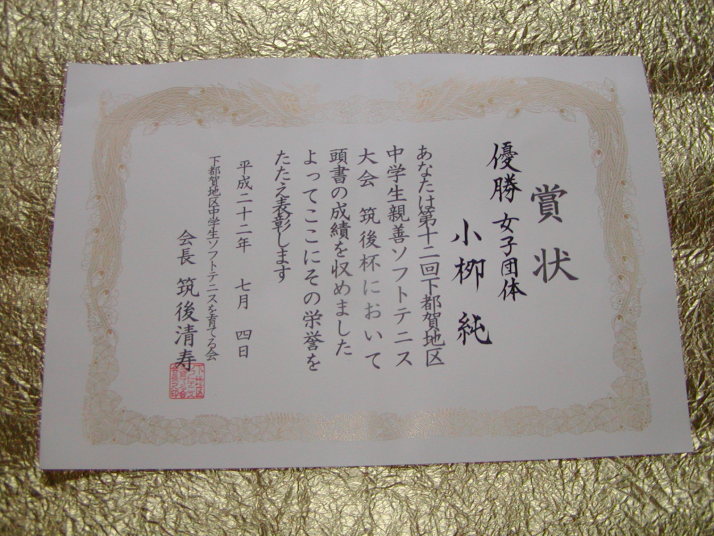 賞状
優勝 女子団体
小栁 純
あなたは第十二回下都賀地区
中学生親善ソフトテニス
大会 筑後杯において
頭書の成績を収めました
よってここにその栄誉を
たたえ表彰します
平成二十二年 七月 四日
下都賀地区中学生ソフトテニスを育てる会
会長 筑後清寿